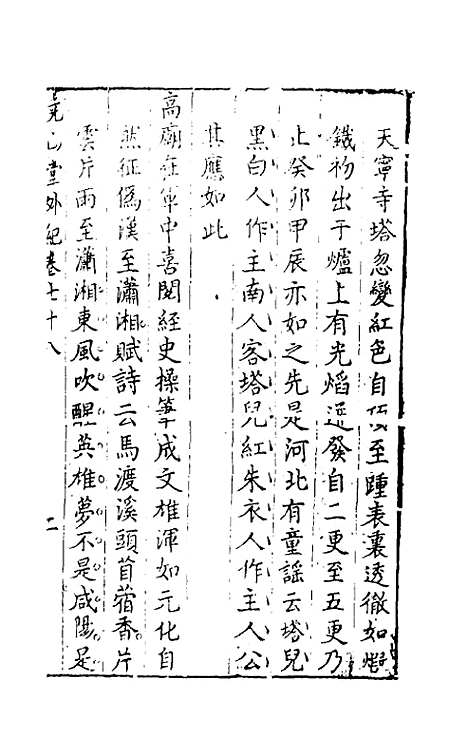 天寧寺塔忽變紅色自頂至踵表裏透徹如煅
鐵初出于爐上有光熖逬發自二更至五更乃
止癸卯甲辰亦如之先是河北有童謡云塔兒
黑白人作主南人客塔兒紅朱衣人作主人公
其應如此
高廟在軍中喜閱經史操筆成文雄渾如元化自
然征僞漢至瀟湘賦詩云馬渡溪頭苜蓿香片
雲片雨至瀟湘東風吹醒英雄夢不是咸陽是
堯山堂外紀卷七十八 二